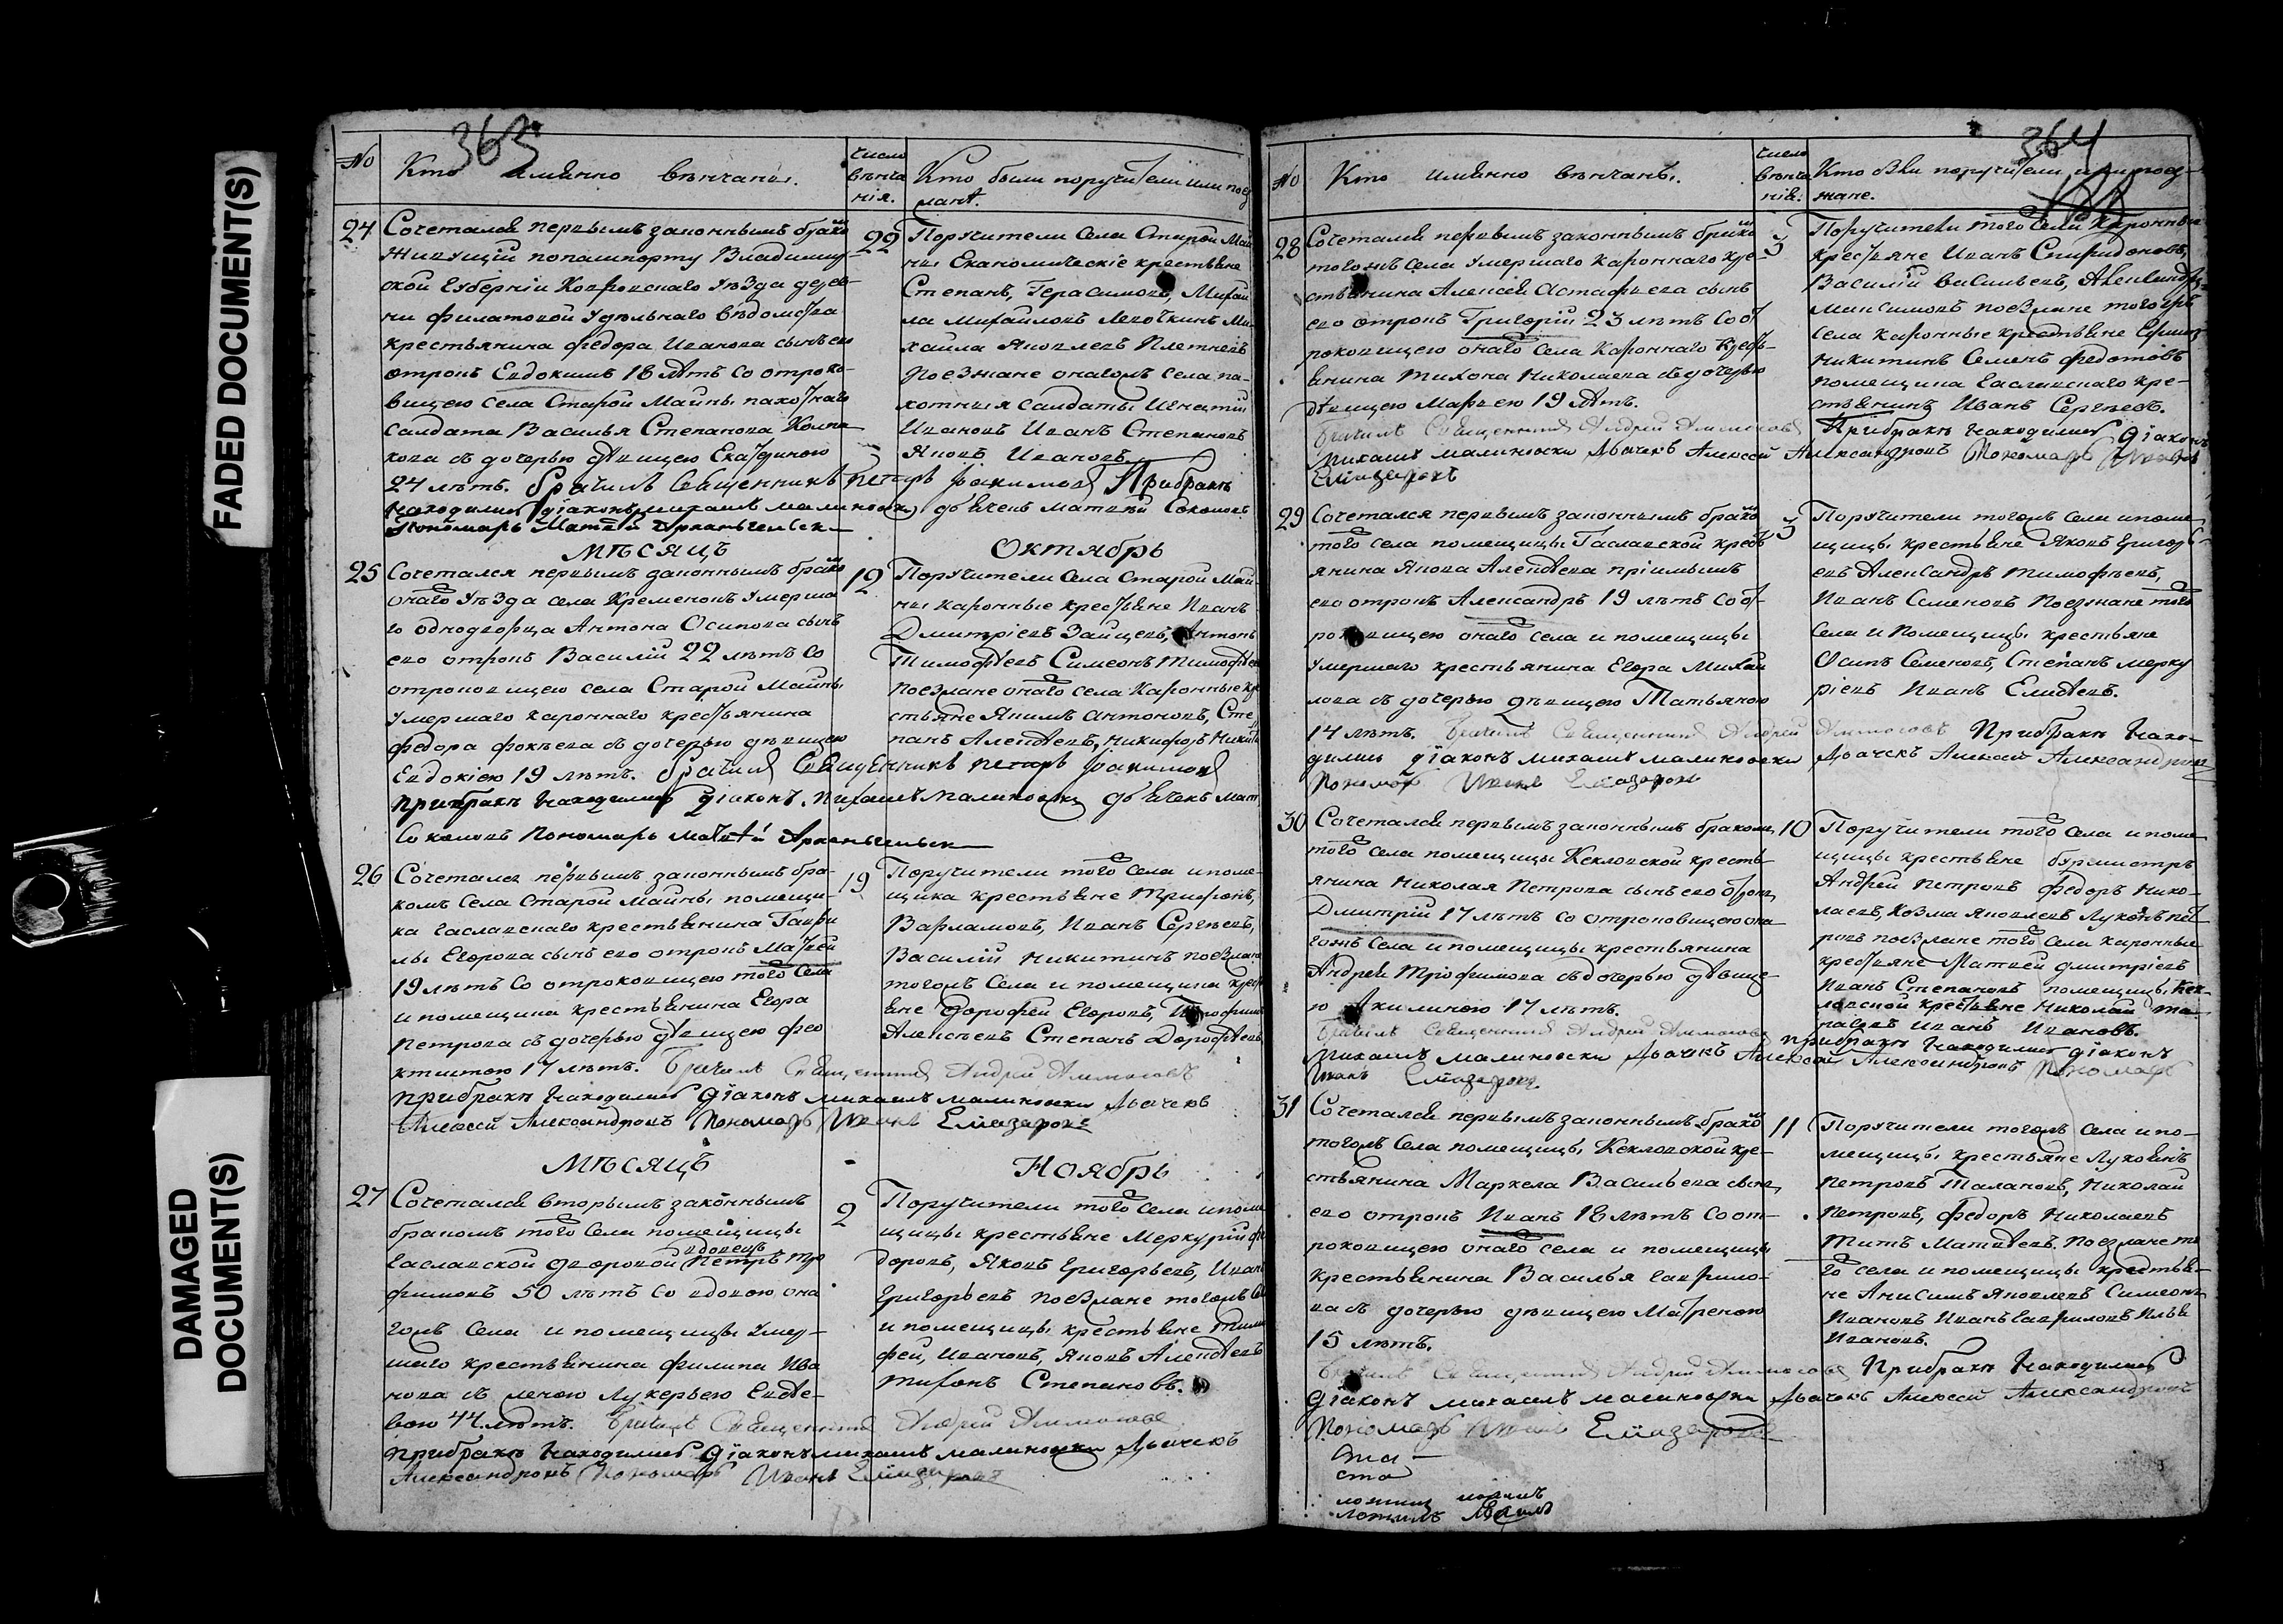 FADED DOCUMENT(S)
DAMAGED
DOCUMENT(S)
363
No
Кто имянно венчаны.
число
венча
нія.
Кто были поручители или поез
жанѣ.
24
Сочетался первымъ законнымъ брако
живущій попашпорту Владимир-
ской Губерніи Ковровскаго Уѣзда дерев-
ни Филатовой Удѣльнаго вѣдомства
крестьянина Федора Иванова сынъ ево
отрокъ Евдокимъ 18 лѣтъ со отроко-
вицею села Старой Майны пахотнаго
салдата Василья Степанова Колпа
кова съ дочерью дѣвицею Екатериною
24 лѣтъ. Брачилъ Священникъ Петръ Іоакимовъ При бракѣ
находились діаконъ Михаилъ Малиновски дьячекъ Матвей Соколовъ
Пономарь Матвей Арханьгельск
22
Поручители Села Старой Май
ны Екахомическіе крестьяне
Степанъ, Герасимовъ, Михаи
ла Михаиловъ Левочкинъ Ми
хаила Яковлевъ Плетневъ
Поезжане онагожъ села па-
хотныя салдаты Игнатій
Ивановъ Иванъ Степановъ
Яковъ Ивановъ.
Мѣсяцъ Октябрь
25
Сочетался первымъ законнымъ брако
онаго Уѣзда села Кременокъ Умерша
го однодворца Антона Осипова сынъ
ево отрокъ Василій 22 лѣтъ со
отроковицею села Старой Майны
Умершаго казоннаго крестьянина
Федора Фокѣева съ дочерью дѣвицею
Евдокіею 19 лѣтъ. Брачилъ Священникъ Петръ Іоакимовъ
При бракѣ находились діаконъ Михаилъ Малиновски дьячекъ Мат
Соколовъ Пономарь Матвей Арханьгельск
12
Поручители Села Старой Май-
ны казонные крестьяне Иванъ
Дмитріевъ Зайцевъ, Антонъ
Тимофѣевъ Симеонъ Тимофѣев
поезжане онаго села казонные кр
стьяне Якимъ Антоновъ, Сте
панъ Алексѣевъ, Никифоръ Никит
26
Сочетался первымъ законнымъ бра-
комъ Села Старой Майны помещи-
ка Гаславскаго крестьянина Гаври
лы Егорова сынъ ево отрокъ Матвей
19 лѣтъ Со отроковицею того Села
и помещика крестьянина Егора
Петрова съ дочерью дѣвицею Фео
ктистою 17 лѣтъ. Брачилъ Священникъ Андрей
При бракѣ находились діаконъ Михаилъ Малиновски дьячекъ
Алексей Александровъ Пономарь Иванъ Елиазаровъ
19
Поручители того Села и поме-
щика крестьяне Трифонъ,
Варламовъ, Иванъ Сергѣевъ,
Василій Никитинъ поезжане
тогожъ Села и помещика крест
яне Дорофей Егоровъ, Трофимъ
Алексѣевъ Степанъ Дорофѣевъ
Мѣсяцъ Ноябрь
27
Сочетался вторымъ законнымъ
бракомъ того Села помещицы
вдовецъ
Гаславской дворовой Петръ Тро
фимовъ 50 лѣтъ со вдовою она
гожъ Села и помещицы Умер-
шаго крестьянина Филипа Ива
нова съ женою Лукерьею Евдѣ-
вою 44 лѣтъ. Брачилъ Священникъ Андрей
При бракѣ находились діаконъ Михаилъ Малиновски дьячекъ
Александровъ Пономарь Иванъ Елиазаровъ
2
Поручители того Села и поме
щицы крестьяне Меркурій Фе
доровъ, Яковъ Григорьевъ, Иван
Григорьевъ поезжане тогожъ Се
и помещицы крестьяне Тимо
фей, Ивановъ, Яковъ Алексѣевъ
Тихонъ Степановъ.
364
No
Кто имянно вѣнчаны.
число
вѣнча
нія.
Кто были поручители или поез-
жане.
28
Сочетался первымъ законнымъ брако
тогожъ села Умершаго казоннаго кре-
стьянина Алексея Астафьева сынъ
ево отрокъ Григорій 23 лѣтъ Со от
роковицею онаго села Казоннаго Кресть-
янина Тихона Николаева съ дочерью
дѣвицею Марьею 19 лѣтъ.
Брачилъ Священникъ Андрей При бракѣ находились Діаконъ
Михаилъ Малиновски дьячекъ Алексей Александровъ Пономарь Иванъ
Елиазаровъ
3
Поручители того Села Казонныя
крестьяне Иванъ Спиридоновъ,
Василій Васильевъ, Александръ
Максимовъ поезжане тогожъ
села казонные крестьяне Ефимъ
Никитинъ Семенъ Федотовъ
помещика Гаславскаго кре-
стьянинъ Иванъ Сергѣевъ.
29
Сочетался первымъ законнымъ брако
того села помещицы Гаславской крест
янина Якова Алексѣева пріимышъ
ево отрокъ Александръ 19 лѣтъ Со от-
роковицею онаго села и помещицы
умершаго крестьянина Егора Михаи
лова съ дочерью дѣвицею Татьяною
14 лѣтъ. Брачилъ Священникъ Андрей При бракѣ нахо-
дились діаконъ Михаилъ Малиновски Дьячекъ Алексей Александровъ
Пономарь Иванъ Елиазаровъ
3
Поручители тогожъ Села и поме-
щицы крестьяне Яковъ Григорь-
евъ Александръ Тимофѣевъ,
Иванъ Семеновъ Поезжане того
Села и Помещицы крестьяне
Осипъ Семеновъ, Степанъ Мерку
ріевъ Иванъ Елисѣевъ.
30
Сочетался первымъ законнымъ бракомъ
того села помещицы Кекловской кресть
янина Николая Петрова сынъ ево отрокъ
Дмитрій 17 лѣтъ со отроковицею она
гожъ Села и помещицы крестьянина
Андрея Трофимова съ дочерью дѣвице-
ю Акилиною 17 лѣтъ.
Брачилъ Священникъ Андрей При бракѣ находились діаконъ
Михаилъ Малиновски Дьячекъ Алексей Александровъ Пономарь
Иванъ Елиазаровъ
10
Поручители того Села и поме
щицы крестьяне бурмистръ
Андрей Петровъ Федоръ Нико-
лаевъ, Козма Яковлевъ Лукоянъ Пет
ровъ поезжане того Села казонные
крестьяне Матвей Дмитріевъ
Иванъ Степановъ помещицы Кек-
ловской крестьяне Николай
Иванъ Ивановъ.
31
Сочетался первымъ законнымъ брако
тогожъ Села помещицы Кекловской кре-
стьянина Маркела Васильева сынъ
ево отрокъ Иванъ 18 лѣтъ Со от-
роковицею онаго села и помещицы
крестьянина Василья Гаврило-
ва съ дочерью дѣвицею Матреною
15 лѣтъ.
Брачилъ Священникъ Андрей При бракѣ находились
Діаконъ Михаилъ Малиновски Дьячекъ Алексей Александровъ
Пономарь Иванъ Елиазаровъ
11
Поручители тогожъ Села и по-
мещицы крестьяне Лукоянъ
Петровъ Талановъ, Николай
Петровъ, Федоръ Николаевъ
Титъ Матвѣевъ. Поезжане то
го села и помещицы крестья-
не Анисимъ Яковлевъ Симеонъ
Ивановъ Иванъ Гавриловъ Илья
Ивановъ.